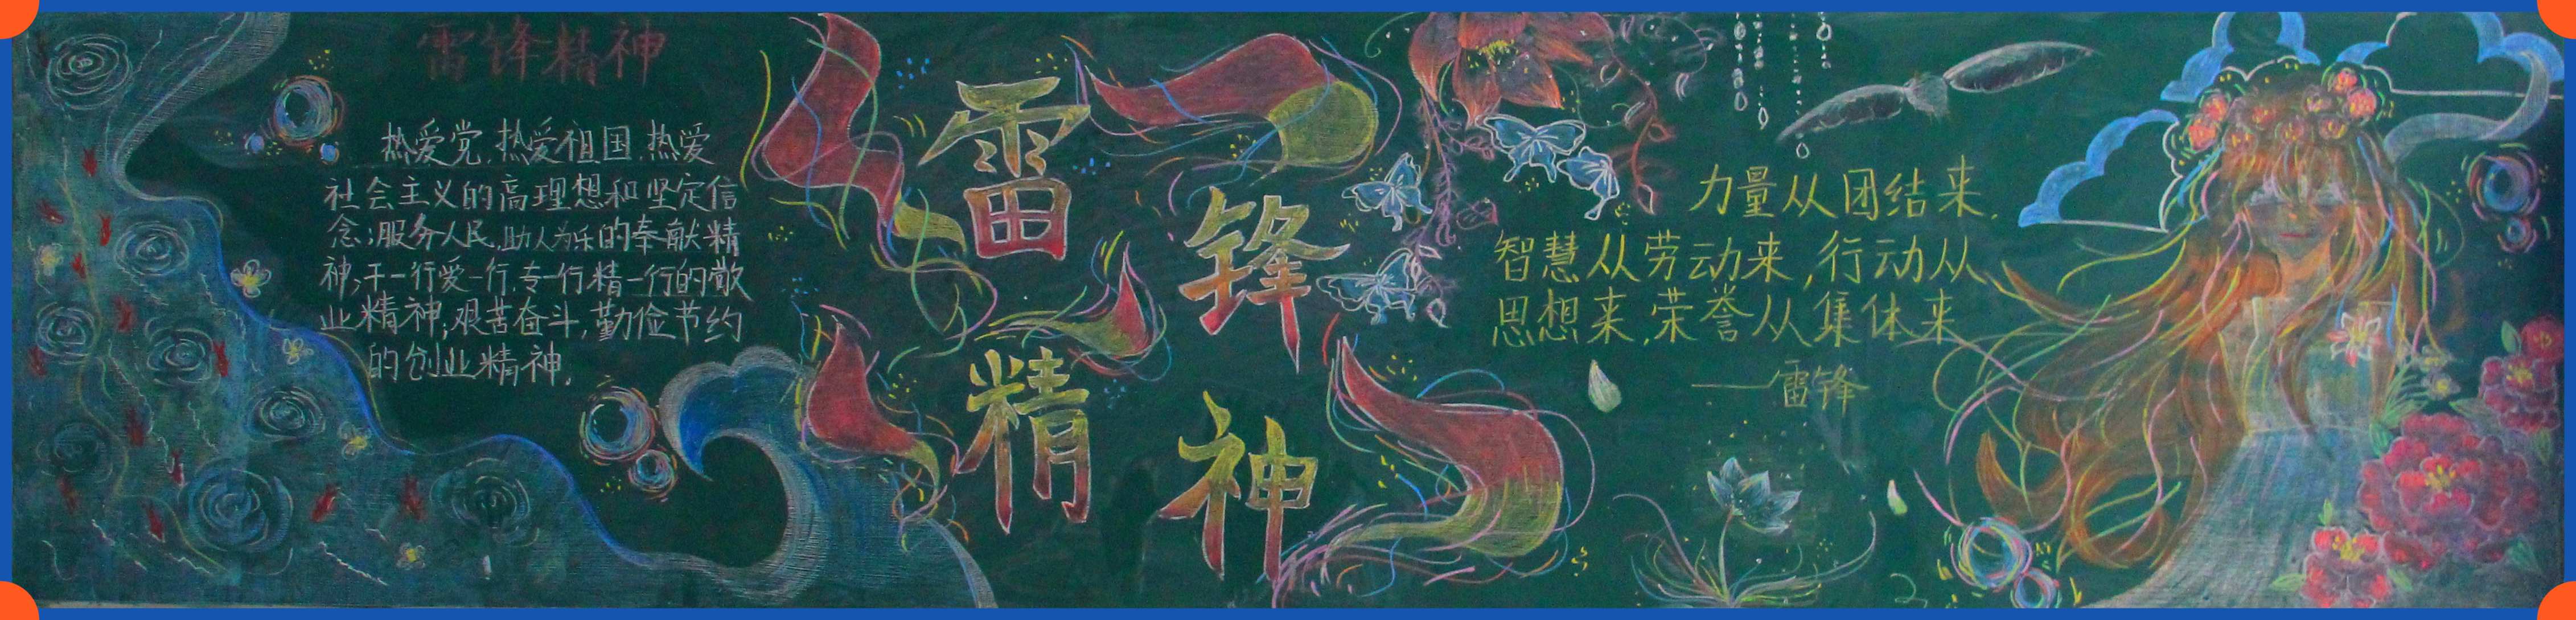 雷锋精神
热爱党,热爱祖国,热爱
社会主义的高理想和坚定信
念;服务人民,助人为乐的奉献精
神;干一行爱一行,专一行精一行的敬
业精神;艰苦奋斗,勤俭节约
的创业精神。
雷锋
精神
力量从团结来,
智慧从劳动来,行动从
思想来,荣誉从集体来
——雷锋